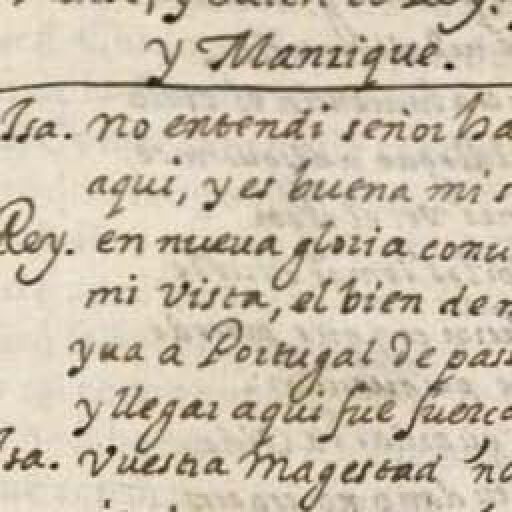 y Manrique.
Isa. no entendi señor ha
aqui, y es buena mi s
Rey. en nueua gloria conu
mi vista, el bien de m
yua a Portugal de pas
y llegar aqui fue fuerca
Isa. vuestra Magestad no